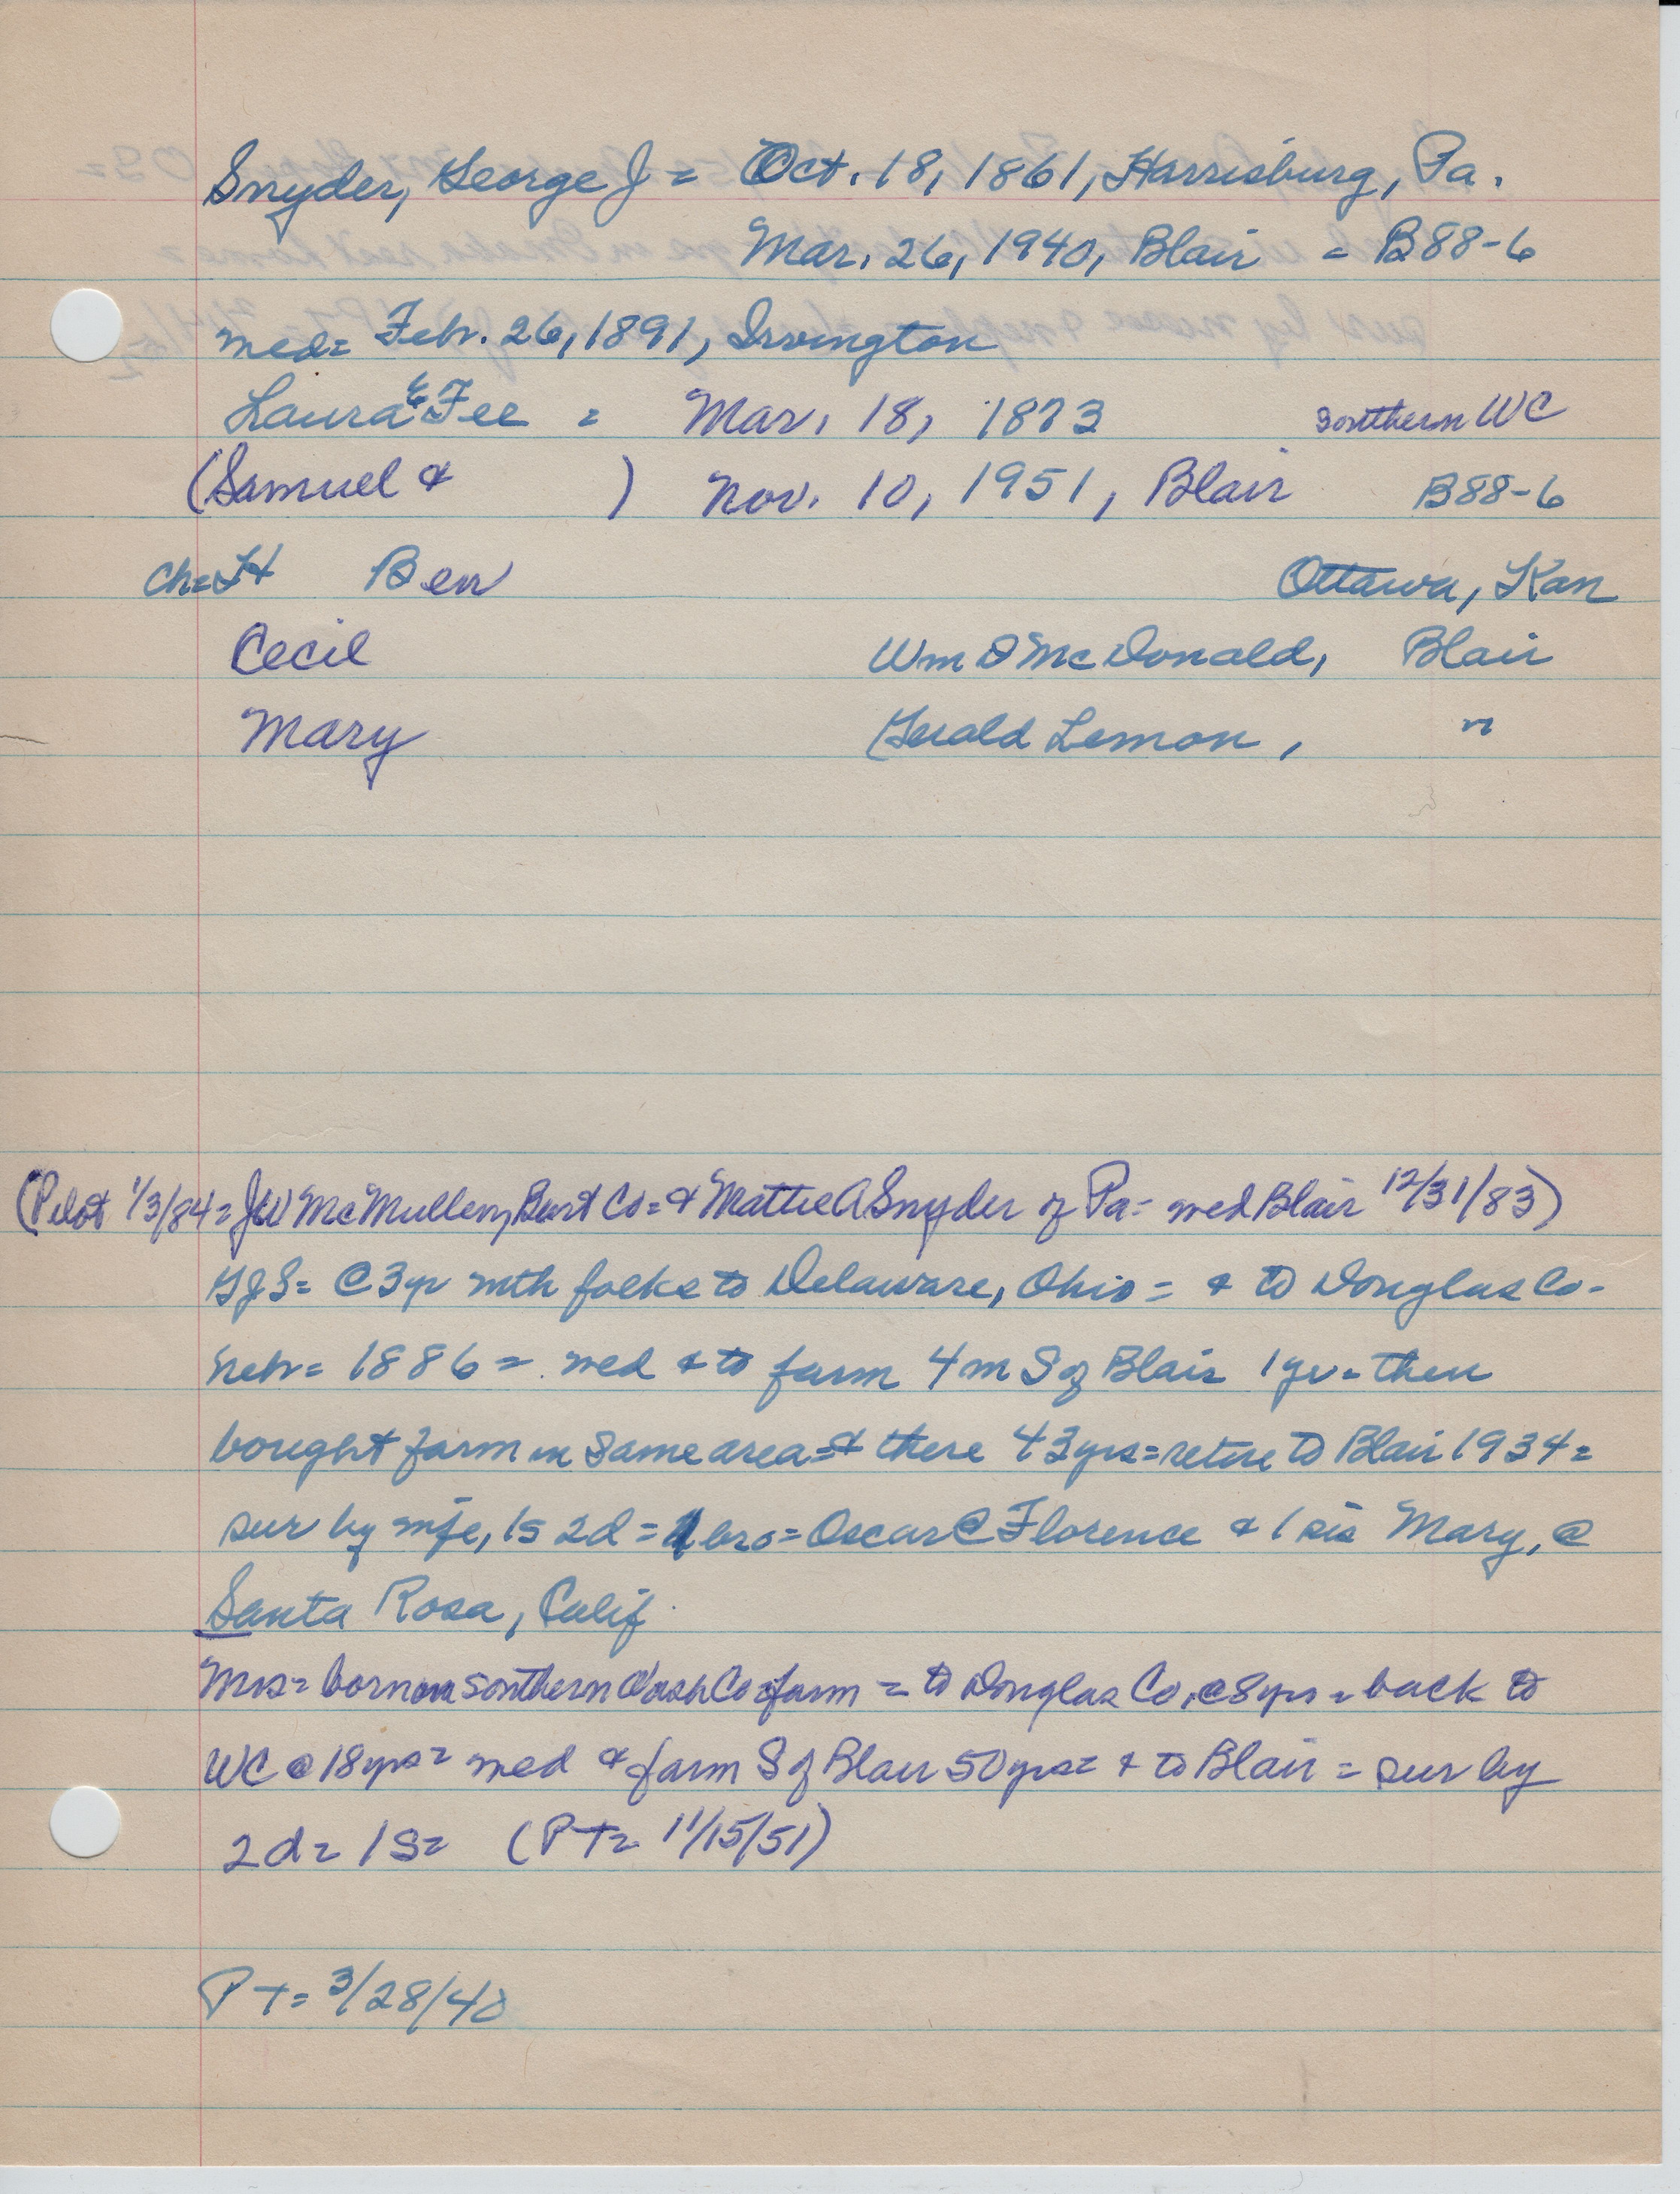 Snyder, George J = Oct. 18, 1861, Harrisburg, Pa.
Mar. 26, 1940, Blair = B88-6
med= Febr. 26, 1891, Irvington
Laura E Fee = Mar. 18, 1873 southern WC
(Samuel & ) Nov. 10, 1951, Blair B88-6
ch= H Ben Ottawa, Kan
Cecil Wm D McDonald, Blair
Mary Gerald Lemon, "
(Pilot 1/3/84= JW McMullen, Burt Co= & Mattie A Snyder of Pa= med Blair 12/31/83)
GJS= @ 3yr with folks to Delaware, Ohio = & to Douglas Co-
Nebr= 1886 = med & to farm 4 m S of Blair 1 yr= then
bought farm in same area= & there 43 yrs= retire to Blair 1934=
sur by wife, 1s 2d = 1 bro= Oscar @ Florence & 1 sis Mary, @
Santa Rosa, Calif.
Mrs= born on southern Wash Co farm = to Douglas Co, @ 8 yrs = back to
WC @ 18 yrs= med & farm S of Blair 50 yrs= & to Blair = sur by
2d= 1s= (PT= 11/15/51)
PT= 3/28/40